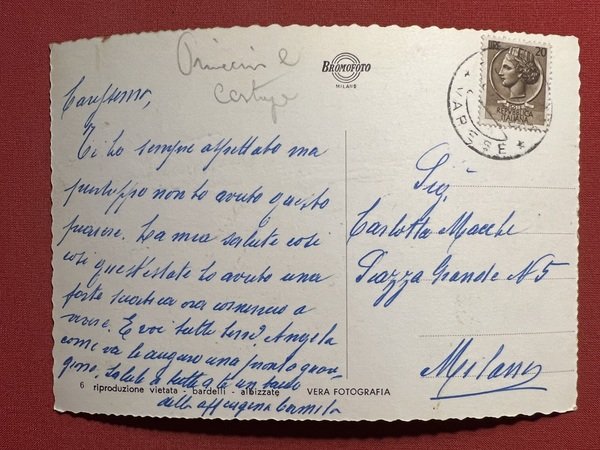 BROMOFOTO
MILANO
LIRE 20
REPUBBLICA
ITALIANA
VARESE
Carissimo,
Ti ho sempre aspettato ma
purtroppo non ho avuto questo
piacere. La mia salute così
così quest'estate ho avuto una
forte sciatica ora comincio a
vivere. E voi tutti bene? Angela
come va le auguro una pronta guari
gione. Saluti a tutti a te un bacio
dalla aff cugina Carmela
Sig.
Carlotta Macchi
Piazza Grande N 5
Milano
6 riproduzione vietata - bardelli - albizzate VERA FOTOGRAFIA